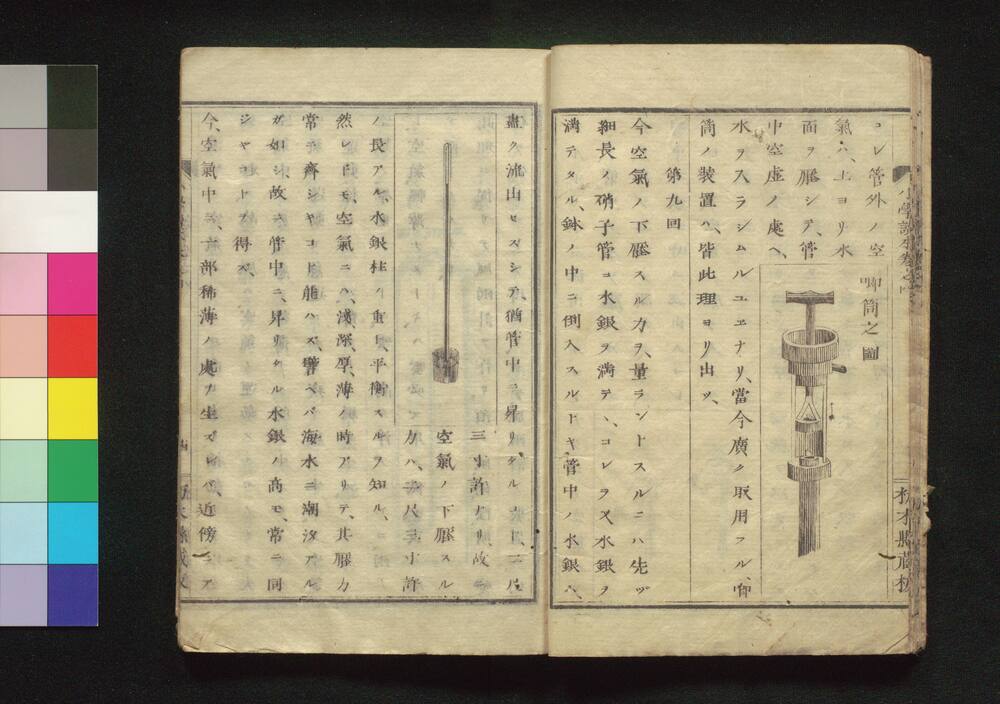 コレ管外ノ空
氣ハ、上ヨリ水
面ヲ壓シテ、管
中空虛ノ處ヘ、
喞筒之圖
水ヲ入ラシムルユエナリ、當今廣ク取用フル、喞
筒ノ裝置ハ、皆此理ヨリ出ヅ、
第九回
今空氣ノ下壓スル力ヲ、量ラントスルニハ先ヅ
細長ノ硝子管ニ水銀ヲ滿テ、コレヲ又水銀ヲ
滿テタル、鉢ノ中ニ倒入スルトキ管中ノ水銀ハ、
小學讀本卷之四
栃木縣藏板
盡ク流出セズシテ、猶管中ニ昇リタル
三寸許ナリ、故ニ
空氣ノ下壓スル
力ハ、二尺三寸許
ノ長アル、水銀柱ノ重ト、平衡スルヲ知ル、
然レトモ、空氣ニハ、淺深厚薄ノ時アリテ、其壓力
常ニ齊シキヿ能ハズ、譬ヘバ海水ニ潮汐アル
ガ如シ故ニ管中ニ、昇リタル水銀ノ高モ、常ニ同
ジキヿヲ得ズ、
今、空氣中ニ、一部稀薄ノ處ヲ生ズレバ、近傍ニア